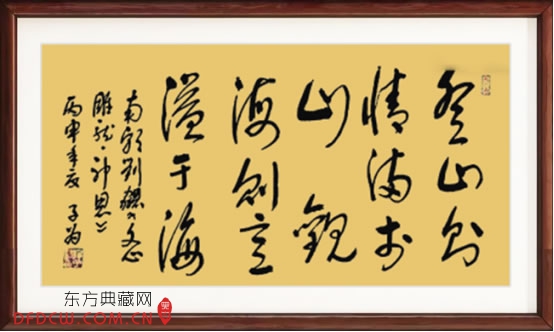 登山则
情满于
山觀
海则意
溢于海
南朝刘勰《文心
雕龙·神思》
丙申年夏 子为
东方典藏网
DFDCW.COM.CN